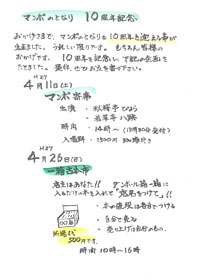 マンボのとなり 10周年記念
おかげさまで、マンボのとなりも10周年を迎える事が
出来ました。うれしい限りです。もちろん皆様の
おかげです。10周年を記念して下記の企画を
たてました。是非、
H27
4月11日(土)
マンボ寄席
出演・
時間・14時〜(13時30分受付)
入場料・1500円
H27
4月26日(日)
一箱古本市
店主はあなた!! ダンボール箱一箱に
入るだけの本を入れて「店名をつけて」!!
・本の値段は各自でつける
・自分で売る
・売り上げは自分のもの。
500円です。
時間 10時〜16時